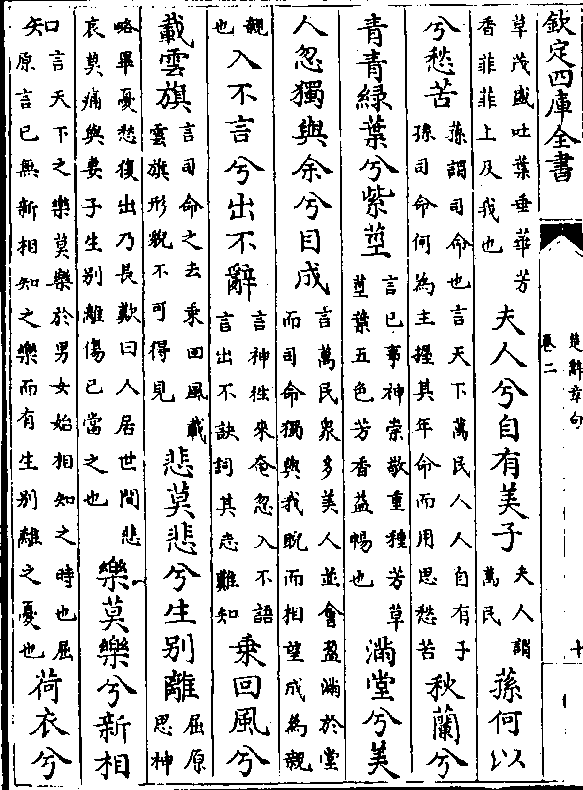 欽定四庫全書
楚辭章句
卷二
十
草茂盛吐葉垂華芳
香菲菲上及我也
夫人兮自有美子
夫人謂
萬民
蓀何以
兮愁苦
蓀謂司命也言天下萬民人人自有子
孫司命何為主握其年命而用思愁苦
秋蘭兮
青青緑葉兮紫莖
言已事神崇敬重種芳草
莖葉五色芳香益暢也
滿堂兮美
人忽獨與余兮目成
言萬民衆多美人並會盈滿於堂
而司命獨與我睨而相望成為親
親
也
入不言兮出不辭
言神往來奄忽入不語
言出不訣詞其志難知
乗回風兮
載雲旗
言司命之去乗回風載
雲旗形貌不可得見
悲莫悲兮生别離
屈原
思神
略畢憂愁復出乃長歎曰人居世間悲
哀莫痛與妻子生别離傷已當之也
樂莫樂兮新相
知
言天下之樂莫樂於男女始相知之時也屈
原言已無新相知之樂而有生别離之憂也
荷衣兮